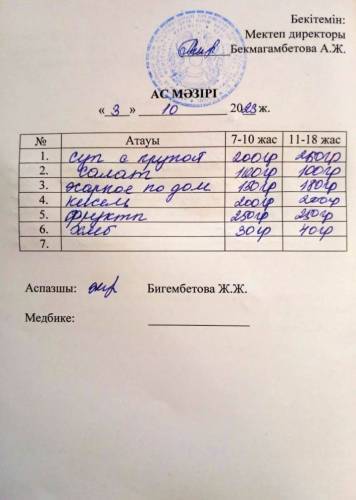 Бекітемін:
Мектеп директоры
Бекмагамбетова А.Ж.
АС МӘЗІРІ
« 3 » 10 2023 ж.
№ Атауы 7-10 жас 11-18 жас
1. суп с крупой 200гр 250гр
2. салат 100гр 100гр
3. жаркое по дом 150гр 180гр
4. кисель 200гр 200гр
5. фрукты 250гр 250гр
6. хлеб 30гр 40гр
7.
Аспазшы: Бигембетова Ж.Ж.
Медбике: